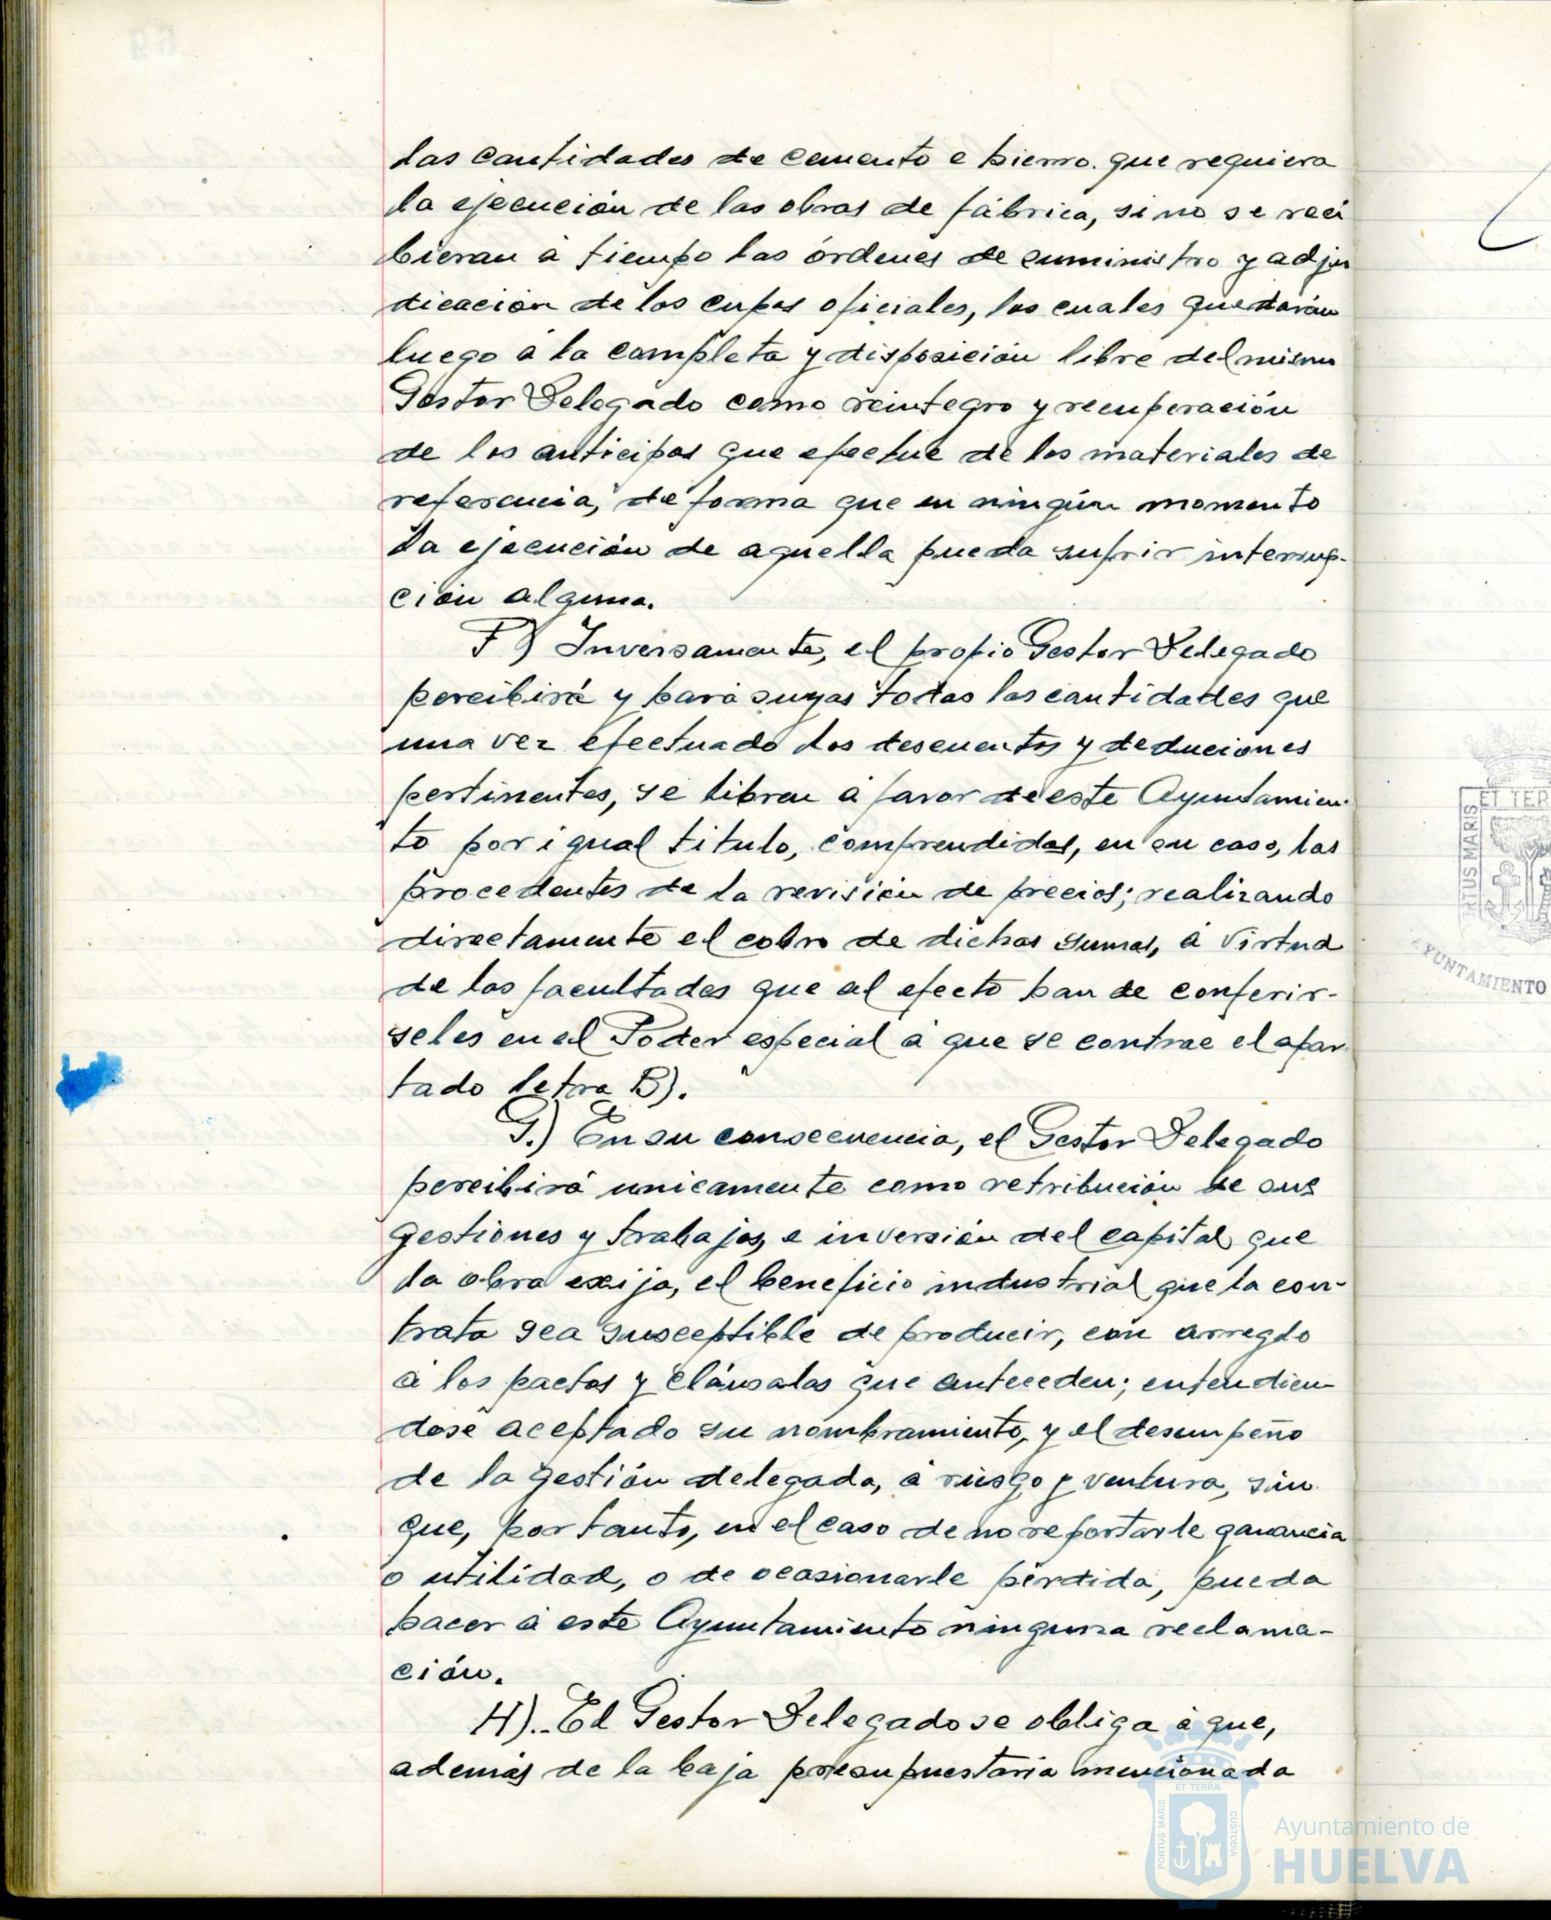 las cantidades de cemento e hierro que requiera
la ejecución de las obras de fábrica, si no se reci
bieran á tiempo las órdenes de suministro y adju
dicación de los cupos oficiales, los cuales quedarán
luego á la completa y disposición libre del mismo
Gestor Delegado como reintegro y recuperación
de los anticipos que efectue de los materiales de
referencia, de forma que en ningún momento
la ejecución de aquella pueda sufrir interrup-
ción alguna.
F) Inversamente, el propio Gestor Delegado
percibirá y hará suyas todas las cantidades que
una vez efectuado los descuentos y deduciones
pertinentes, se libren á favor de este Ayuntamien-
to por igual titulo, comprendidas, en su caso, las
procedentes de la revisión de precios; realizando
directamente el cobro de dichas sumas, á virtud
de las facultades que al efecto han de conferir-
seles en el Poder especial á que se contrae el apar
tado letra B).
G.) En su consecuencia, el Gestor Delegado
percibirá unicamente como retribución de sus
gestiones y trabajos, e inversión del capital que
la obra exija, el beneficio industrial que la con-
trata sea susceptible de producir, con arreglo
á los pactos y cláusalas que anteceden; entendien-
dose aceptado su nombramiento, y el desempeño
de la gestión delegada, á riesgo y ventura, sin
que, por tanto, en el caso de no reportarle ganancia
o utilidad, o de ocasionarle pérdida, pueda
hacer á este Ayuntamiento ninguna reclama-
ción.
H).- El Gestor Delegado se obliga á que,
además de la baja presupuestaria mencionada
ET TER
TUS MARIS
AYUNTAMIENTO
ET TERRÆ
PORTUS MARIS
CUSTODIA
Ayuntamiento de
HUELVA